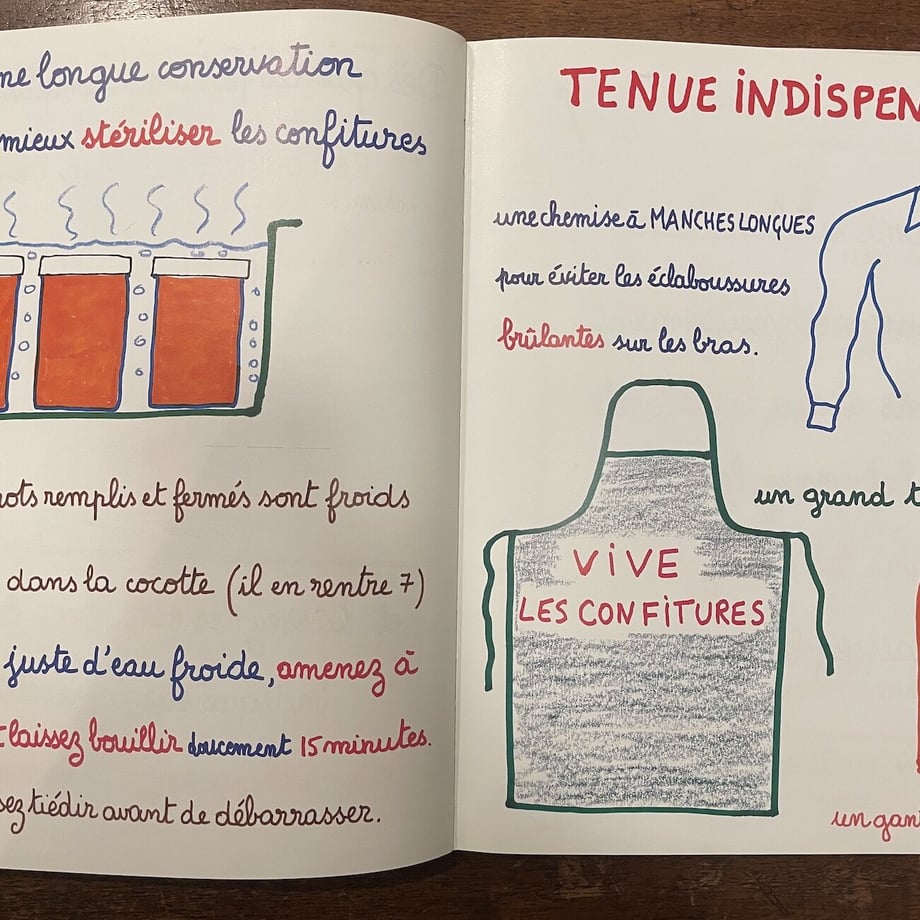 ne longue conservation
mieux stériliser les confitures
pots remplis et fermés sont froids
dans la cocotte (il en rentre 7)
juste d'eau froide, amenez à
t laissez bouillir doucement 15 minutes.
sez tiédir avant de débarrasser.
TENUE INDISPEN
une chemise à MANCHES LONGUES
pour éviter les éclaboussures
brûlantes sur les bras.
un grand t
VIVE
LES CONFITURES
un gan